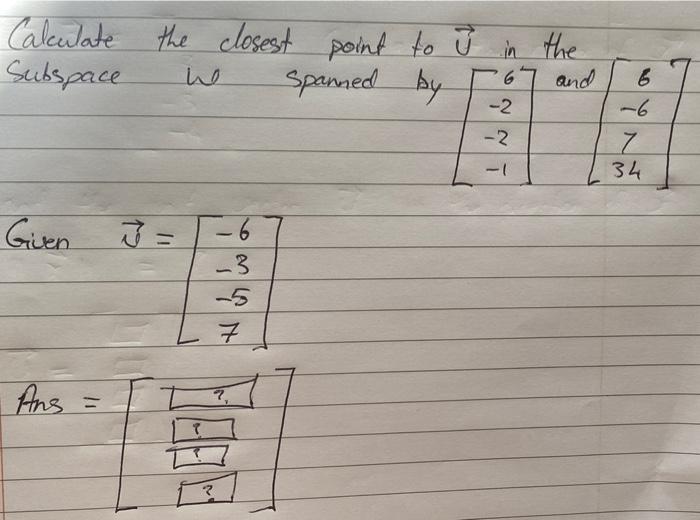 Calculate the closest point to v⃗ in the
Subspace W spanned by [6 -2 -2 -1] and [6 -6 7 34]
Given v⃗ = [-6 -3 -5 7]
Ans = [? ? ? ?]